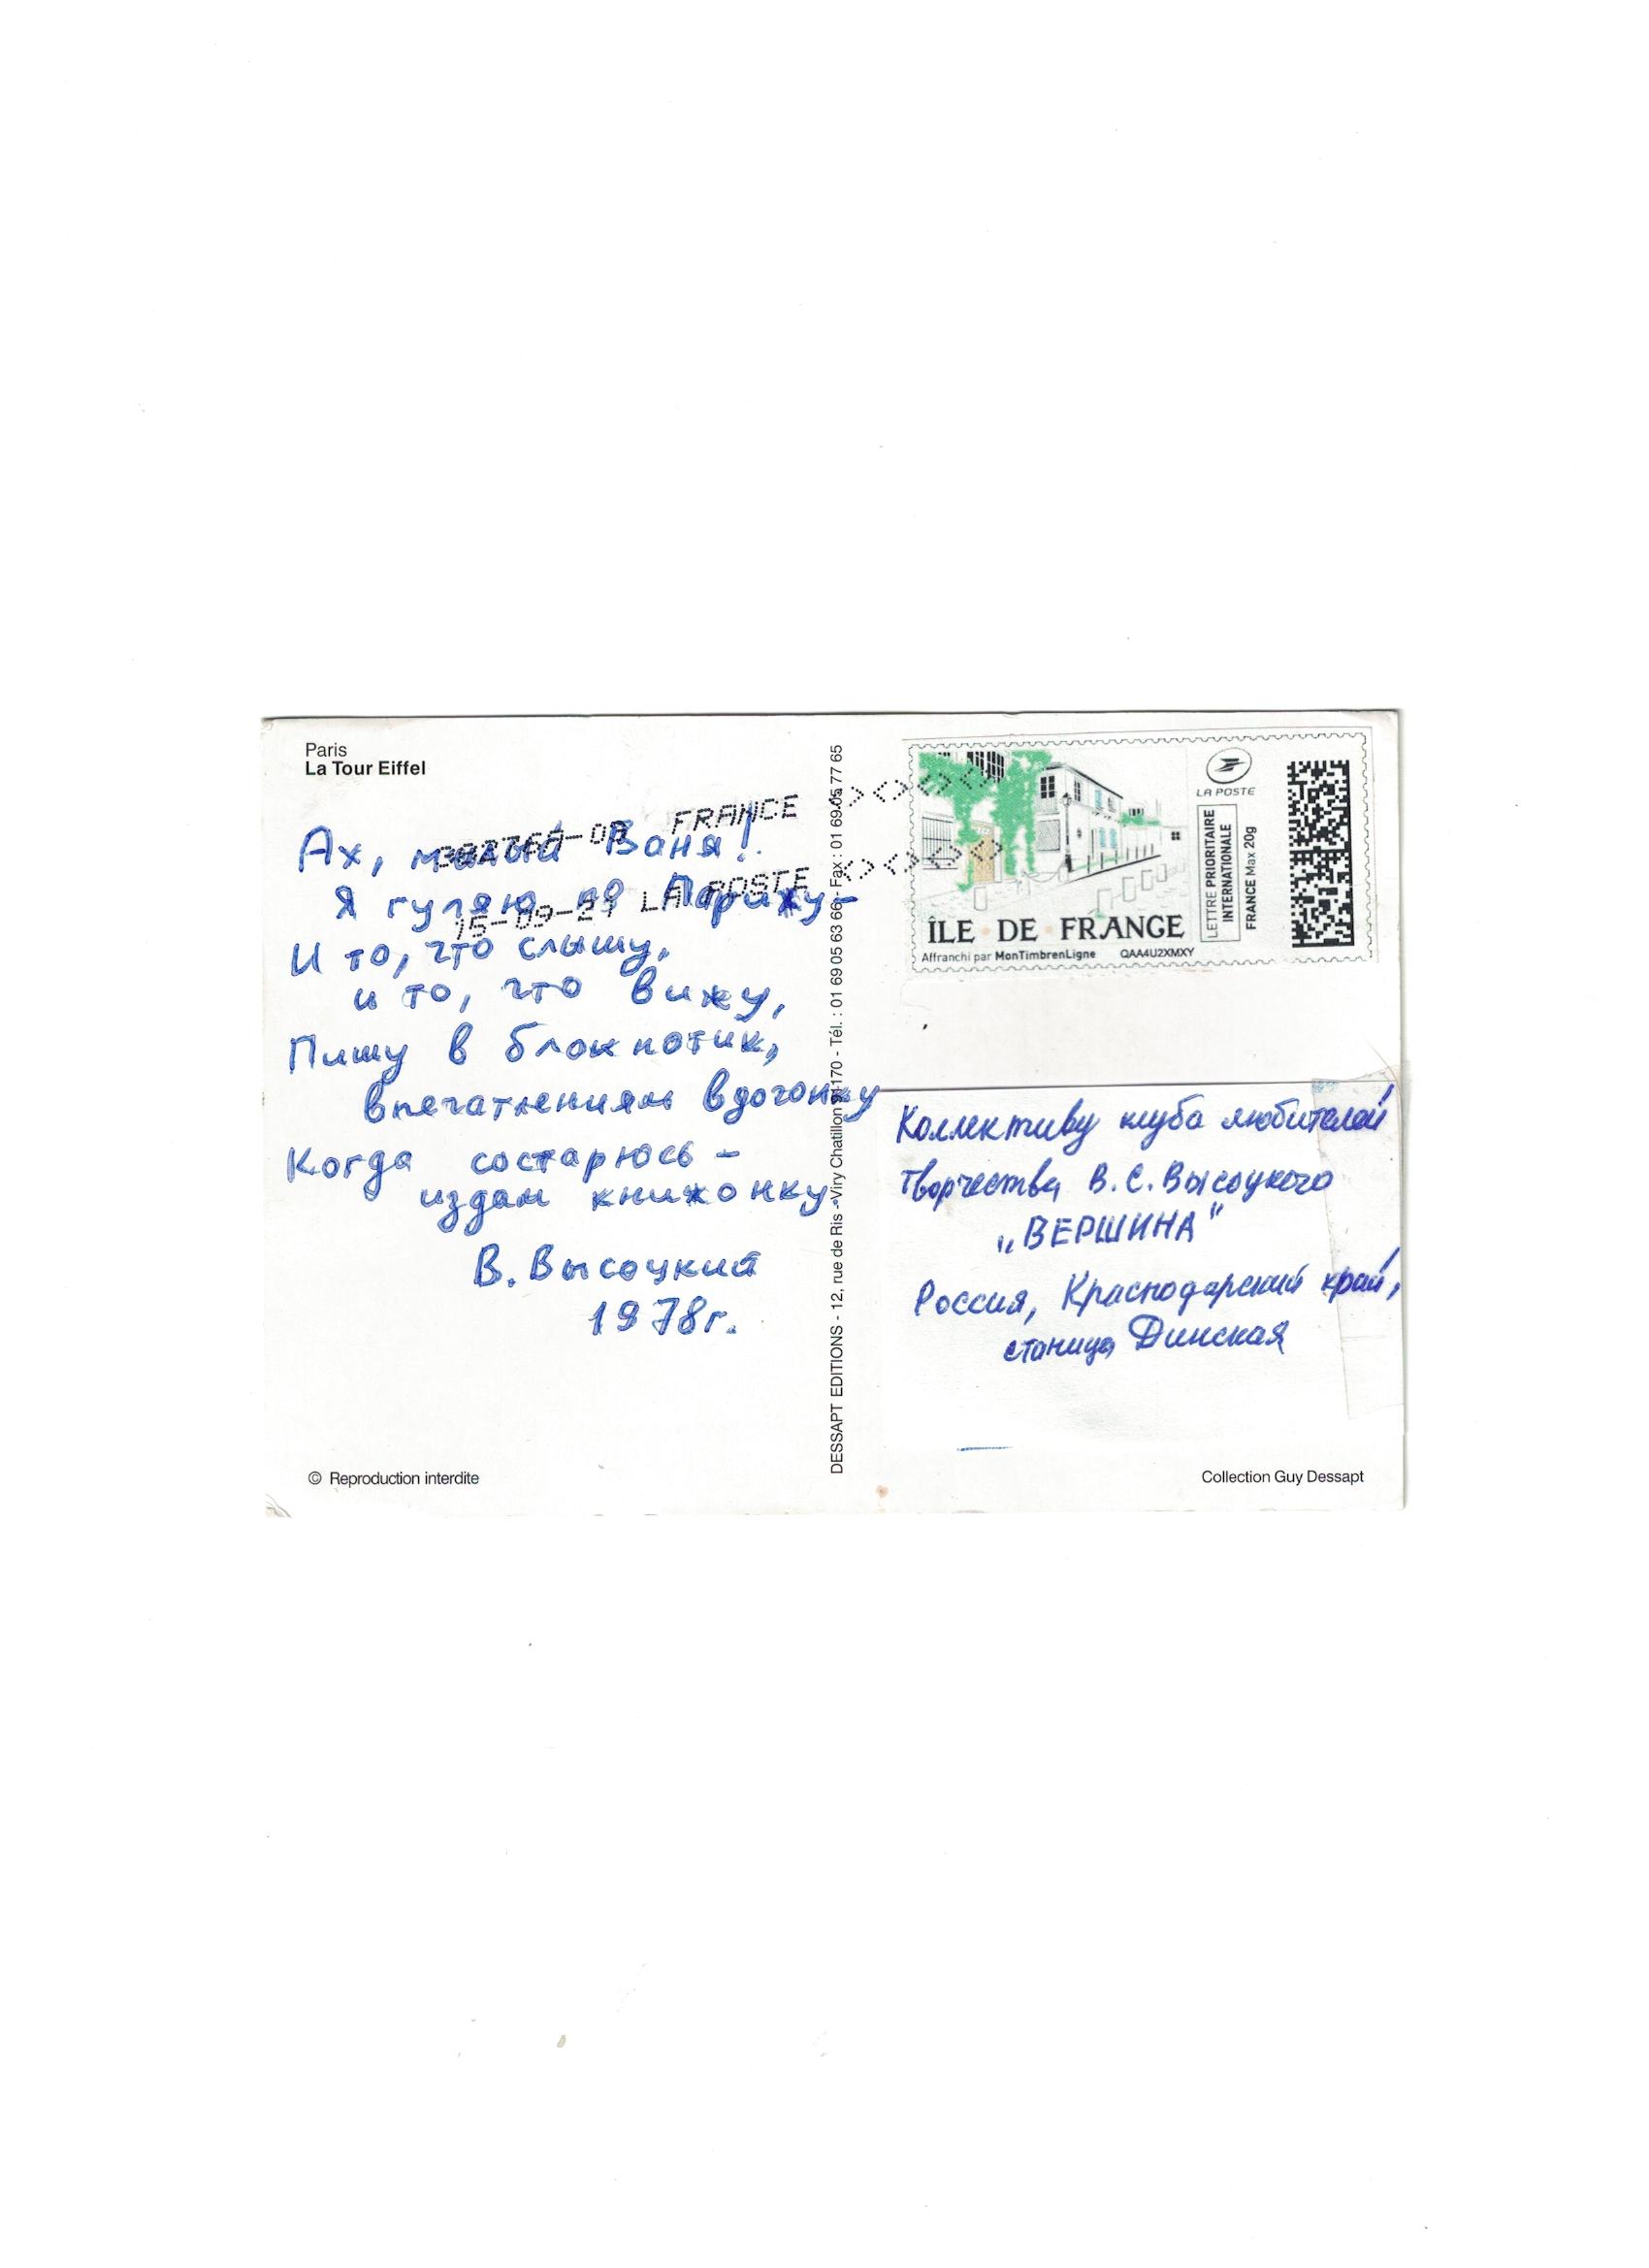 Paris
La Tour Eiffel
FRANCE
LA POSTE
Ах, милый Ваня!
Я гуляю по Парижу -
И то, что слышу,
и то, что вижу,
Пишу в блокнотик,
впечатлениям вдогонку
Когда состарюсь -
издам книжонку
В. Высоцкий
1978г.
© Reproduction interdite
DESSAPT EDITIONS - 12, rue de Ris - Viry Chatillon 91170 - Tél. : 01 69 05 63 66 - Fax : 01 69 05 77 65
ÎLE DE FRANCE
Affranchi par MonTimbrenLigne QAA4U2XMXY
LA POSTE
LETTRE PRIORITAIRE
INTERNATIONALE
FRANCE Max 20g
Коллективу клуба любителей
творчества В.С.Высоцкого
„ВЕРШИНА"
Россия, Краснодарский край,
станица Динская
Collection Guy Dessapt